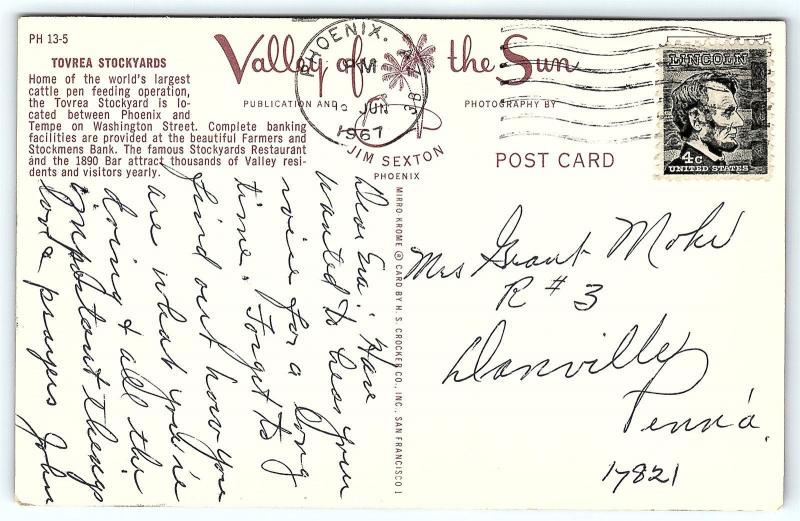 PH 13-5
TOVREA STOCKYARDS
Home of the world's largest
cattle pen feeding operation,
the Tovrea Stockyard is lo-
cated between Phoenix and
Tempe on Washington Street. Complete banking
facilities are provided at the beautiful Farmers and
Stockmens Bank. The famous Stockyards Restaurant
and the 1890 Bar attract thousands of Valley resi-
dents and visitors yearly.
Valley of the Sun
PUBLICATION AND PHOTOGRAPHY BY
JIM SEXTON
PHOENIX
POST CARD
PHOENIX, A
PM
JUN
1967
LINCOLN
4c
UNITED STATES
MIRRO-KROME ® CARD BY H. S. CROCKER CO., INC., SAN FRANCISCO 1
Dear Eva! Have
wanted to hear your
voice for a long
time. Forget to
find out how you
are what you're
doing & all the
important things
Love & prayers John
Mrs Grant Moke
R # 3
Danville
Penn'a.
17821